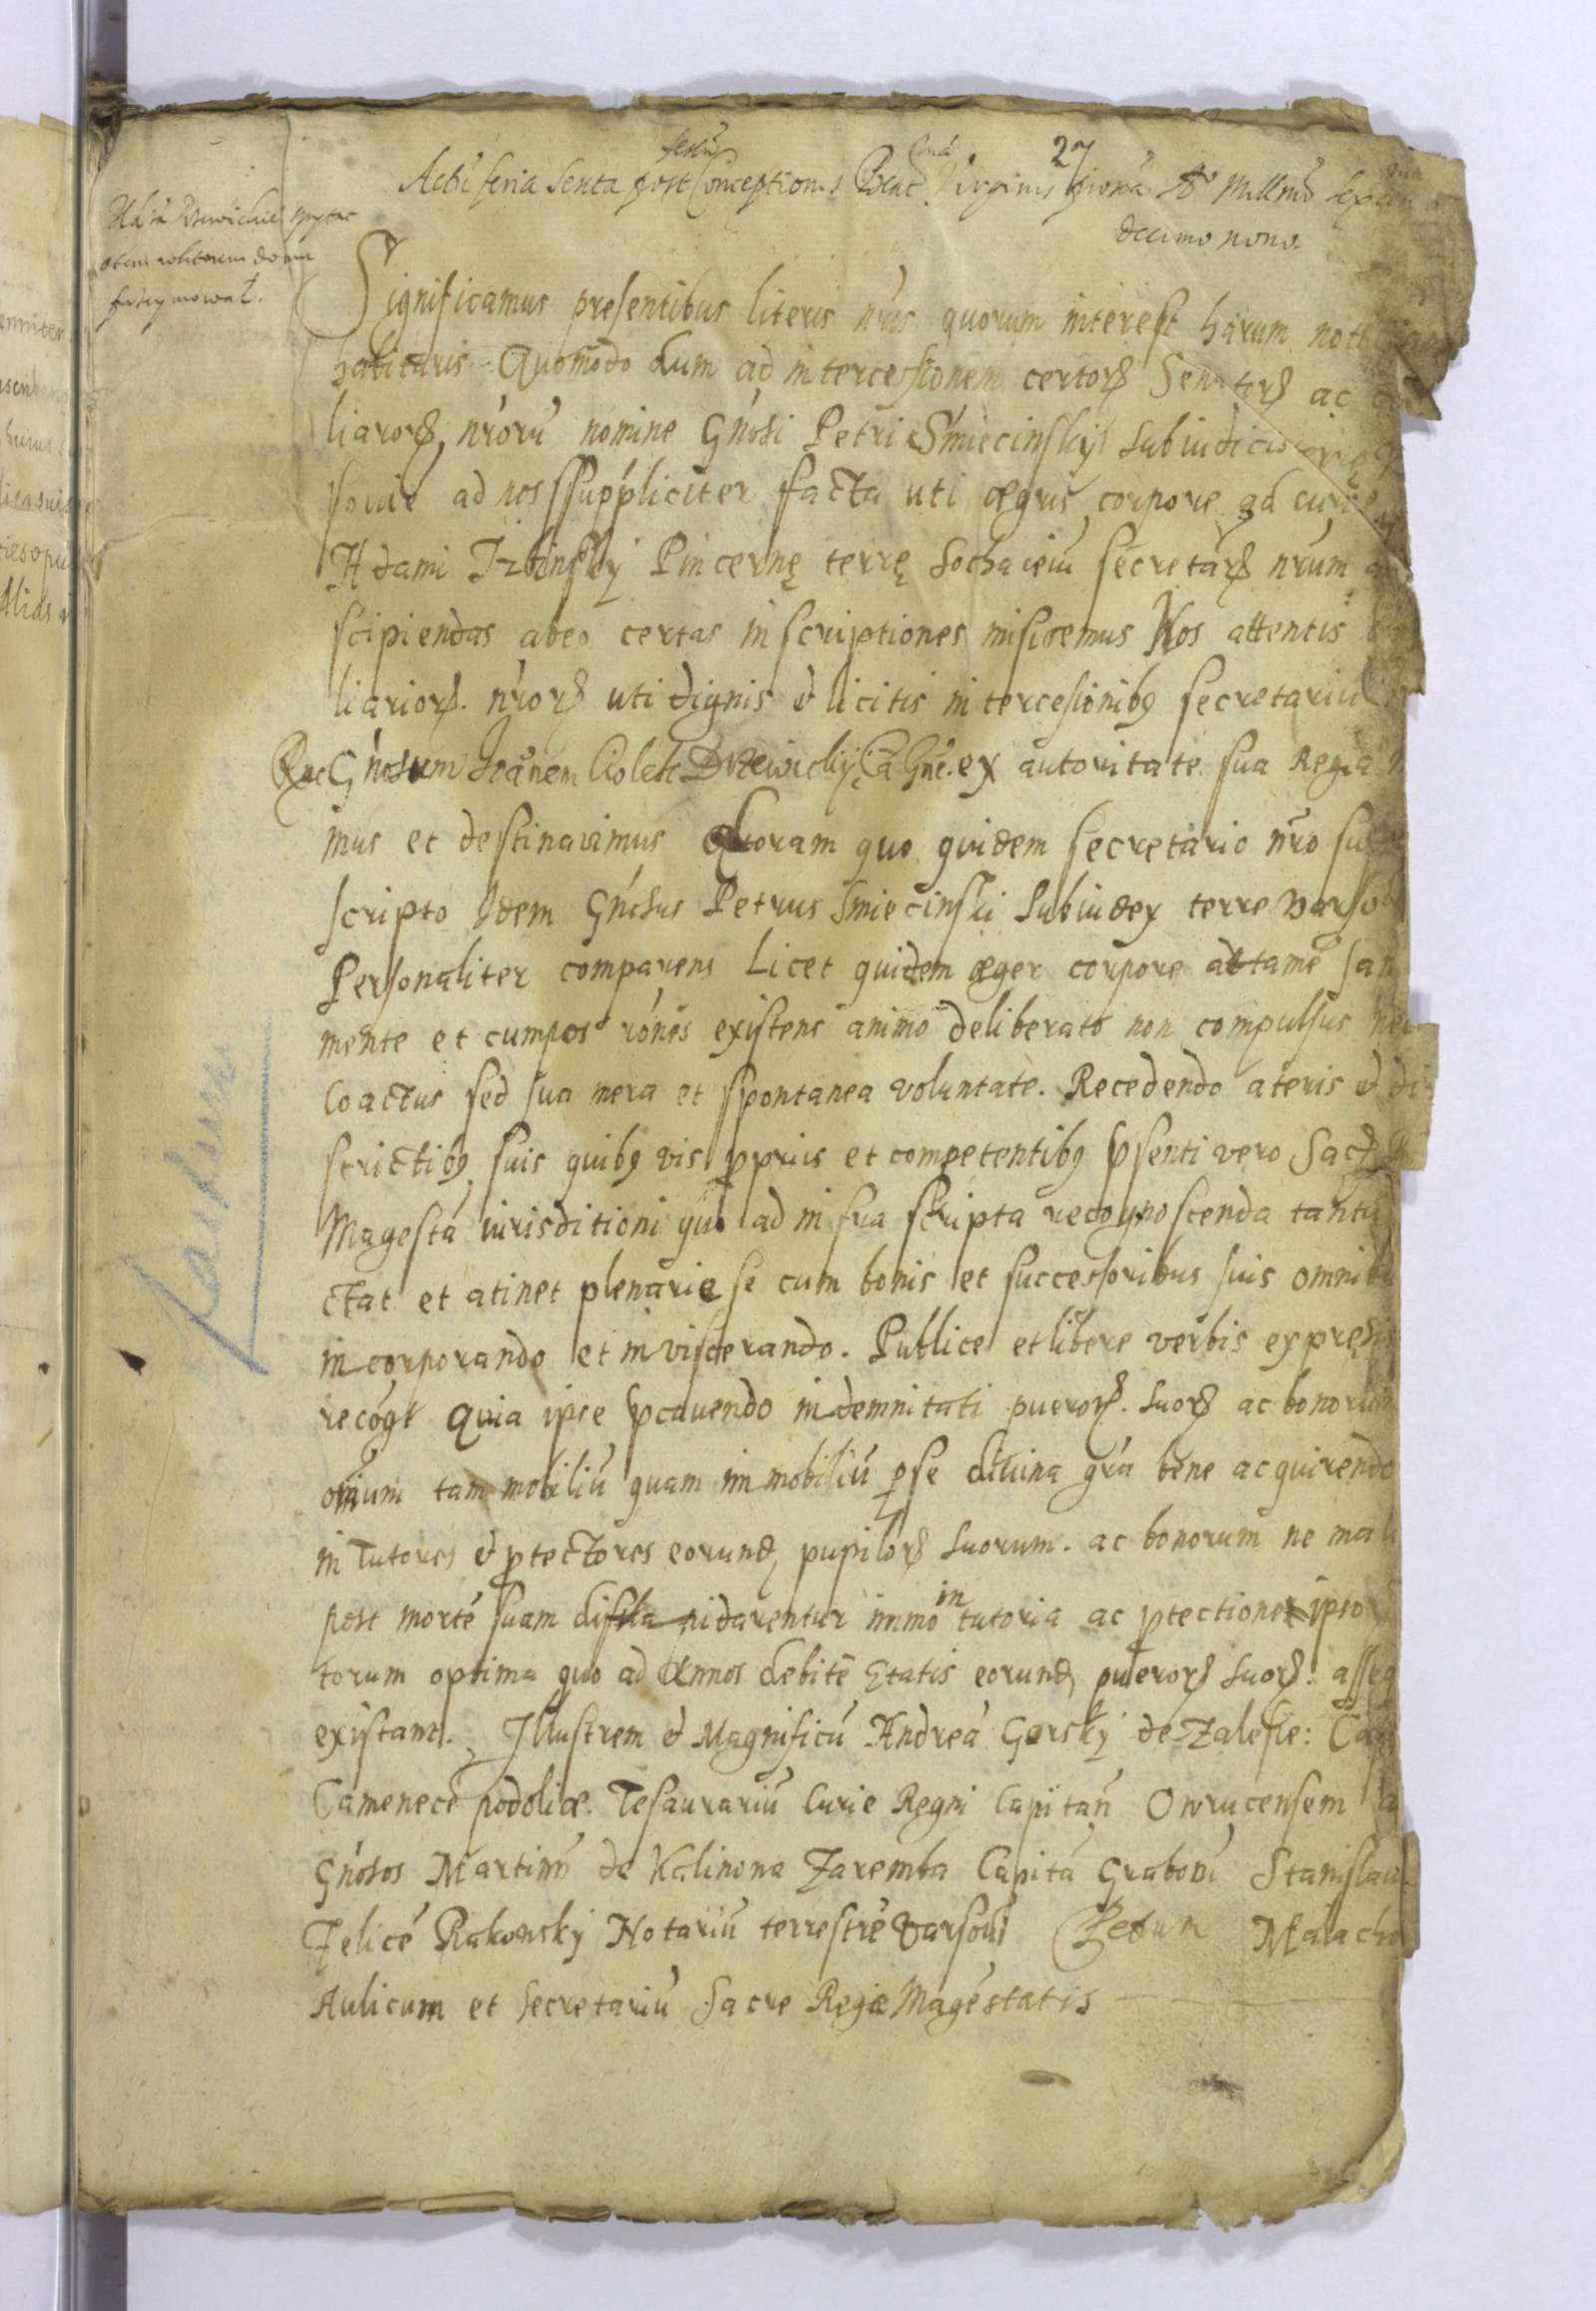 27
festũ
Actũ feria Sexta post Conceptionis Beat. Virginis
decimo nono.
Significamus presentibus literis nr̃is quorum interest harum notitiam
habituris Quomodo dum ad intercessionem certorꝝ Senatorꝝ ac
liarorꝝ nr̃orũ nomine Gñosi Petri Smiecinskÿ Subiudicis
ad nos suppliciter facta uti ægrũ corpore ad
Adami Pincernę terrę Sochacieũ secretarꝝ nr̃um
scipiendas abeo certas inscriptiones mitteremus Nos attentis
liariorꝝ. nr̃orꝝ uti dignis & licitis intercesionibꝰ secretariũ
Gñosum Joanem Ciolek Drzewickÿ ex autoritate sua Regia
mus et destinavimus Coram quo quidem secretario nr̃o sub
scripto Idem Gñosus Petrus Smiecinski Subiudex terre varso
Personaliter comparens Licet quidem æger corpore attamẽ san
mente et cumpos rõnẽs existens animo deliberato non compulsus nec
coactus sed sua mera et spontanea voluntate. Recedendo a teris & di
strictibꝰ suis quibꝰ vis ꝓpriis et competentibꝰ p̃senti vero Sacꝫ
Magestã iurisditioni quo ad infra scripta recognoscenda tantũ
ctat et atinet plenarie se cum bonis et successoribus suis omnibu
incorporando et inviscerando. Publice et libere verbis expręsis
recogt quia ipse p̃cavendo indemnitati puerorꝝ. suorꝝ ac bonorum
oĩnium tam mobiliũ quam immobiliũ ꝑ se divina gr̃a bene acquirendo
in Tutores & ꝓtectores eorundꝫ pupilorꝝ suorum. ac bonorum ne mal
post mortẽ suam pidarentur immo in tutoria ac ꝓtectione ipsorꝝ
torum optima quo ad Annos debitẽ Ętatis eorundꝫ puerorꝝ suorꝝ: asseq
existant. Illustrem & Magnificũ Andreã Gorskj de Zalesie: Cas
Camenecẽ podoliæ. Tesaurariũ Curie Regni Capitañ Owrucensem a
Gñosos Martinũ de Kalinona Zaremba Capitã Grabovĩ Stanislau
Felicẽ Rakowskj Notariũ terrestrẽ varsoviẽ Petrum Malacho
Aulicum et Secretariũ Sacre Regiæ Magestatis